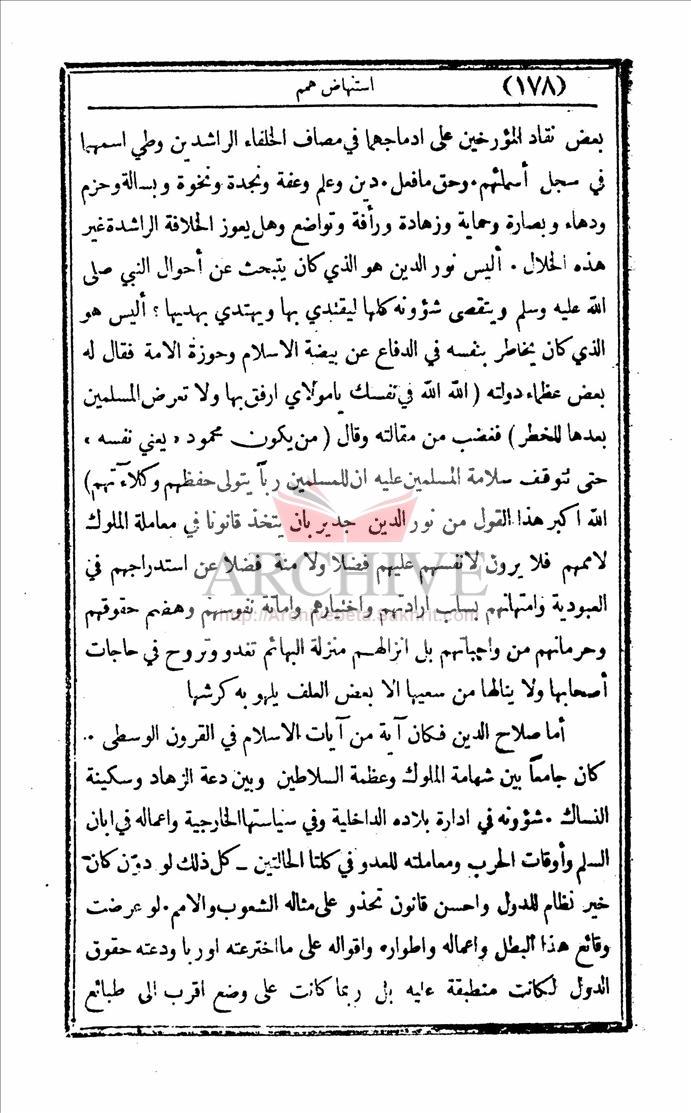 (١٧٨)
استنهاض همم
بعض نقاد المؤرخين على ادماجهما في مصاف الخلفاء الراشدين وطي اسمهما
في سجل أسمائهم، وحق مافعل، دين وعلم وعفة ونجدة ونخوة وبسالة وحزم
ودهاء وبصارة وحماية وزهادة ورأفة وتواضع وهل يعوز الخلافة الراشدة غير
هذه الخلال . أليس نور الدين هو الذي كان يتبحث عن أحوال النبي صلى
الله عليه وسلم ويتقصى شؤونه كلها ليقتدي بها ويهتدي بهديها ؟ أليس هو
الذي كان يخاطر بنفسه في الدفاع عن بيضة الاسلام وحوزة الامة فقال له
بعض عظماء دولته ( الله الله في نفسك يامولاي ارفق بها ولا تعرض المسلمين
بعدها للخطر ) فغضب من مقالته وقال ( من يكون محمود « يعني نفسه »
حتى تتوقف سلامة المسلمين عليه ان للمسلمين رباً يتولى حفظهم وكلاءتهم)
الله اكبر هذا القول من نور الدين جدير بان يتخذ قانونا في معاملة الملوك
لاممهم فلا يرون لانفسهم عليهم فضلا ولا منة فضلا عن استدراجهم في
العبودية وامتهانهم بسلب ارادتهم واختيارهم واماتة نفوسهم وهضم حقوقهم
وحرمانهم من واجباتهم بل انزالهم منزلة البهائم تغدو وتروح في حاجات
أصحابها ولا ينالها من سعيها الا بعض العلف يلهو به كرشها
أما صلاح الدين فكان آية من آيات الاسلام في القرون الوسطى ..
كان جامعاً بين شهامة الملوك وعظمة السلاطين وبين دعة الزهاد وسكينة
النساك . شؤونه في ادارة بلاده الداخلية وفي سياستها الخارجية واعماله في ابان
السلم وأوقات الحرب ومعاملته للعدو في كلتا الحالتين ـ كل ذلك لو دوّن كان
خير نظام للدول واحسن قانون تحذو على مثاله الشعوب والامم . لو عرضت
وقائع هذا البطل واعماله واطواره واقواله على ما اخترعته اوربا ودعته حقوق
الدول لكانت منطبقة عليه بل ربما كانت على وضع اقرب الى طبائع
ARCHIVE
http://Archivebeta.Sakhrit.com